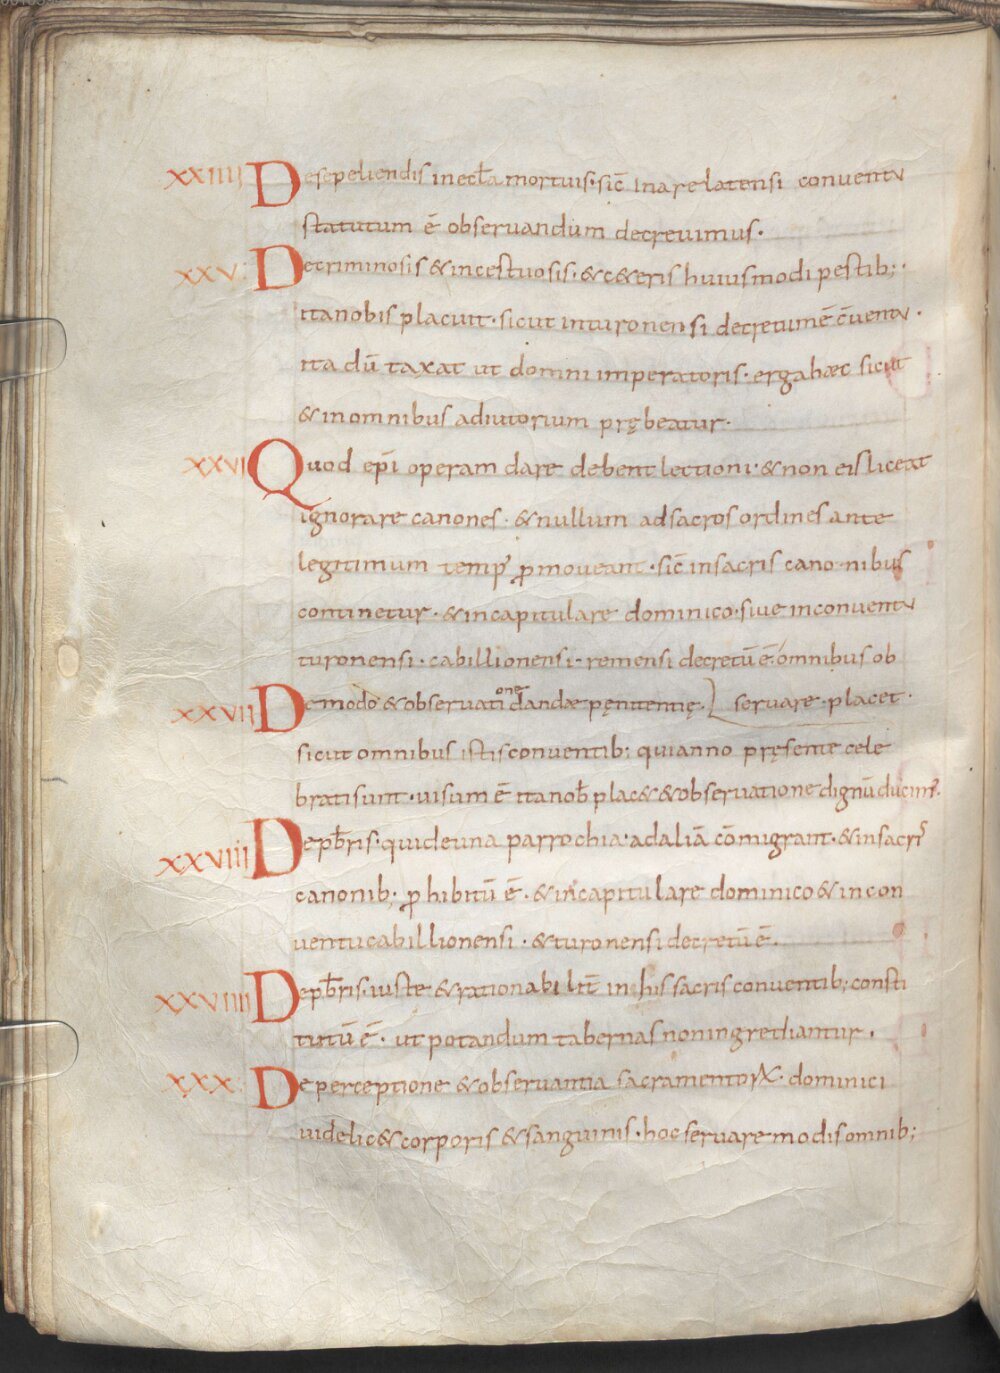 XXIIII De sepeliendis in eccła mortuis · sic̄ in arelatensi conventu
statutum ē observandum decrevimus ·
XXV : De criminosis & incestuosis · & c&eris huiusmodi pestib; ·
ita nobis placuit · sicut in turonensi decretum ē c̄ventu ·
ita dū taxat ut domni imperatoris · erga hæc sicut
& in omnibus adiutorium prębeatur ·
XXVI Quod ep̄i operam dare debent lectioni · & non eis liceat
ignorare canones · & nullum ad sacros ordines ante
legitimum temp' ꝓmoveant · sic̄ in sacris cano nibus
continetur · & in capitulare dominico · sive in conventu
turonensi · cabillionensi · remensi decretū ē · omnibus ob
XXVII De modo & observatione dandæ pęnitentię · servare placet ·
sicut omnibus istis conventib; qui anno pręsente cele
brati sunt · visum ē ita nob̄ plac& & observatione dignū ducim' ·
XXVIII De pb̄ris · qui de una parrochia · ad aliā cōmigrant · & in sacris
canonib; ꝓhibitū ē · & in capitulare dominico & in con
ventu cabillionensi · & turonensi decretū ē ·
XXVIIII De pb̄ris · iuste & rationabilit̄ in his sacris conventib; consti
tutū ē · ut potandum tabernas non ingrediantur ·
XXX : De perceptione & observantia sacramentoꝝ · dominici
videlic& corporis & sanguinis · hoc servare modis omnib;